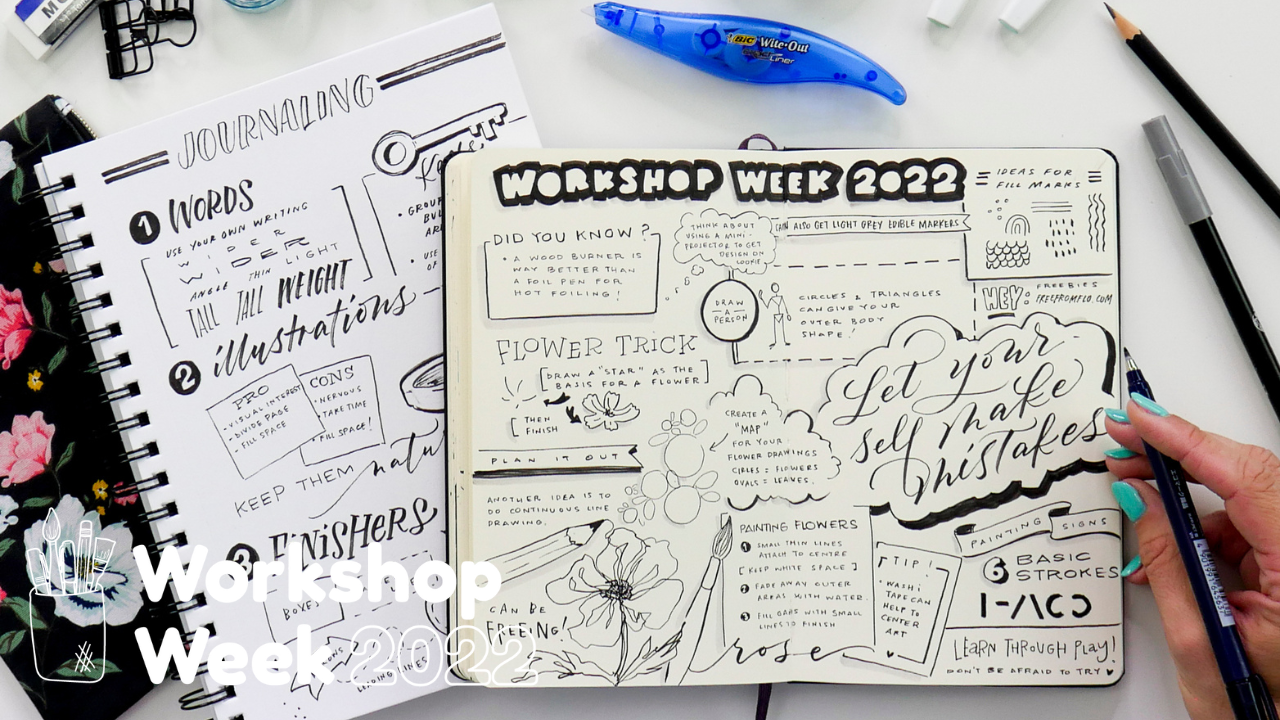 JOURNALING
1 WORDS
USE YOUR OWN WRITING
WIDER
WIDER
THIN LIGHT
ANGLE
TALL TALL WEIGHT
2 illustrations
PRO
• VISUAL INTEREST
• DIVIDE PAGE
• FILL SPACE
CONS
• NERVOUS
• TAKE TIME
• FILL SPACE!
KEEP THEM
3 FINISHERS
BOXES
WORKSHOP WEEK 2022
DID YOU KNOW?
• A WOOD BURNER IS
WAY BETTER THAN
A FOIL PEN FOR
HOT FOILING!
THINK ABOUT
USING A MINI-
PROJECTOR TO GET
DESIGN ON
COOKIE
CAN ALSO GET LIGHT GREY EDIBLE MARKERS
IDEAS FOR
FILL MARKS
DRAW
A
PERSON
CIRCLES & TRIANGLES
CAN GIVE YOUR
OUTER BODY
SHAPE!
HEY:
FREEBIES
FREEFROMFLO.COM
FLOWER TRICK
DRAW A "STAR" AS THE
BASIS FOR A FLOWER
THEN
FINISH
PLAN IT OUT
CREATE A
"MAP"
FOR YOUR
FLOWER DRAWINGS
CIRLES = FLOWERS
OVALS = LEAVES.
Let your
self make
mistakes
ANOTHER IDEA IS TO
DO CONTINUOUS LINE
DRAWING.
CAN BE
FREEING!
PAINTING FLOWERS
1 SMALL THIN LINES
ATTACH TO CENTRE
[KEEP WHITE SPACE]
2 FADE AWAY OUTER
AREAS WITH WATER.
3 FILL GAPS WITH SMALL
LINES TO FINISH
rose
TIP!
• WASHI
TAPE CAN
HELP TO
CENTER
ART
PAINTING SIGNS
6 BASIC
STROKES
LEARN THROUGH PLAY!
DON'T BE AFRAID TO TRY ♥
BIC Wite-Out
Workshop
Week 2022